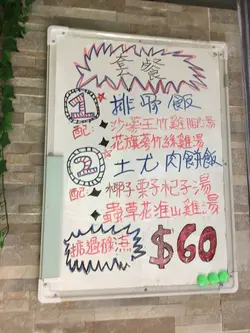 套餐
1 排骨飯
配: 沙葛玉竹雞腳湯
花旗蔘竹絲雞湯
2 土尤肉餅飯
配: 椰子栗子杞子湯
蟲草花淮山雞湯
$60